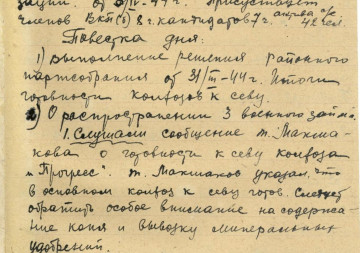 зации. от 5/IV-44г. Присутствует
членов ВКП(б) 8 г. кандидатов 7 г. актива с/с 42 чел.
Повестка дня:
1) выполнение решения районного
партсобрания от 31/III-44г. Итоги
готовности колхозов к севу.
2) О распространении 3 военного займа.
1. Слушали сообщение т. Макша-
кова о готовности к севу колхоза
"Прогрес". т. Макшаков указал, что
в основном колхоз к севу готов. Следует
обратить особое внимание на содержа-
ние коня и вывозку минеральных
удобрений.